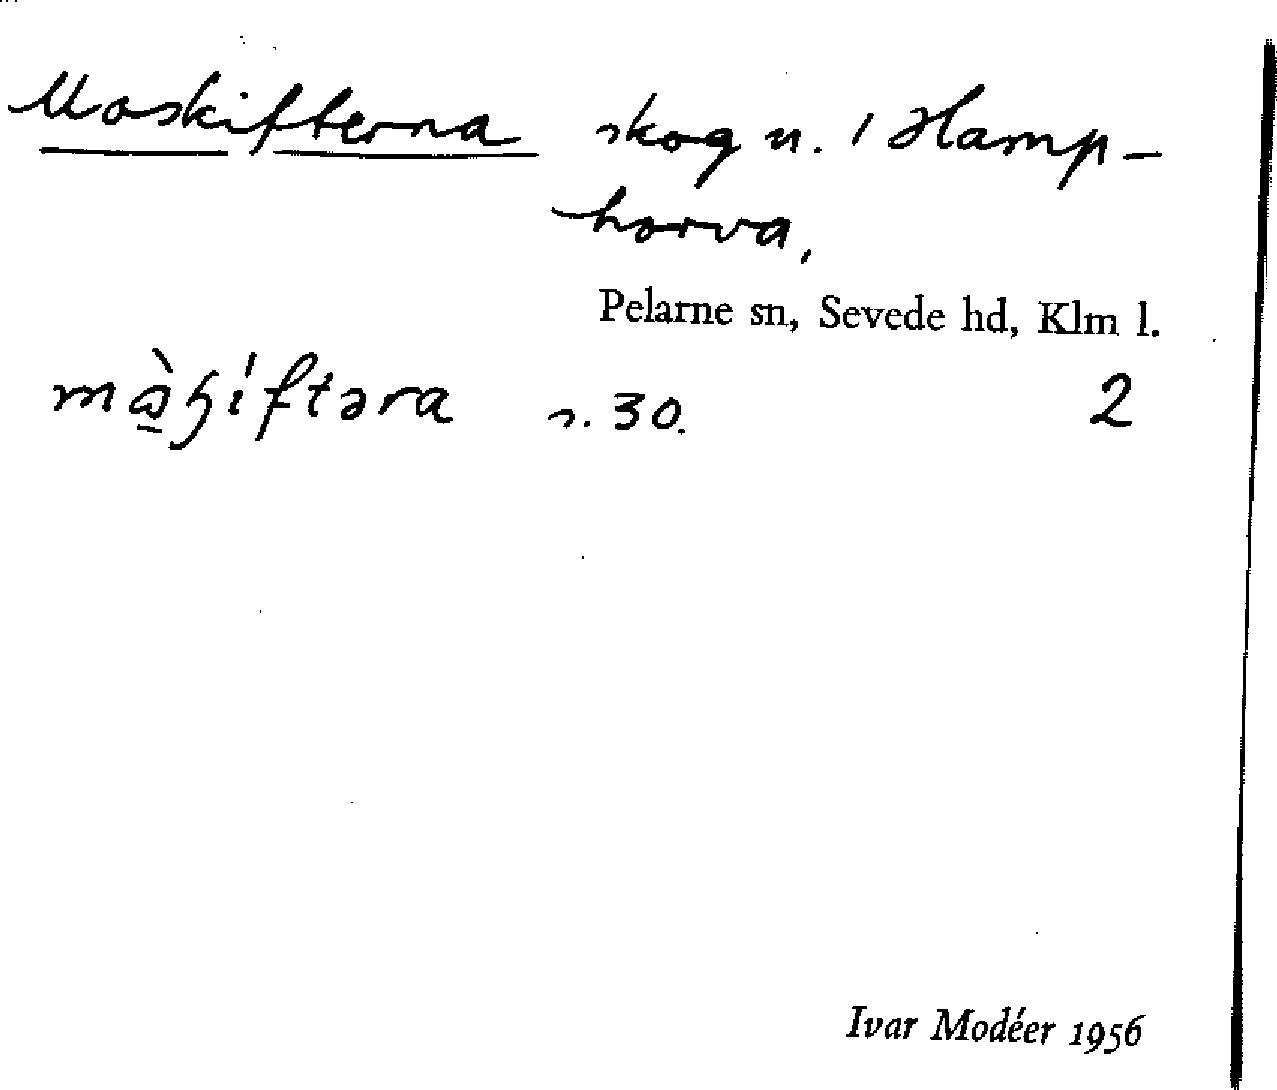 Moskifterna skog n. / Hamp-
horva,
Pelarne sn, Sevede hd, Klm l.
s. 30. 2
Ivar Modéer 1956